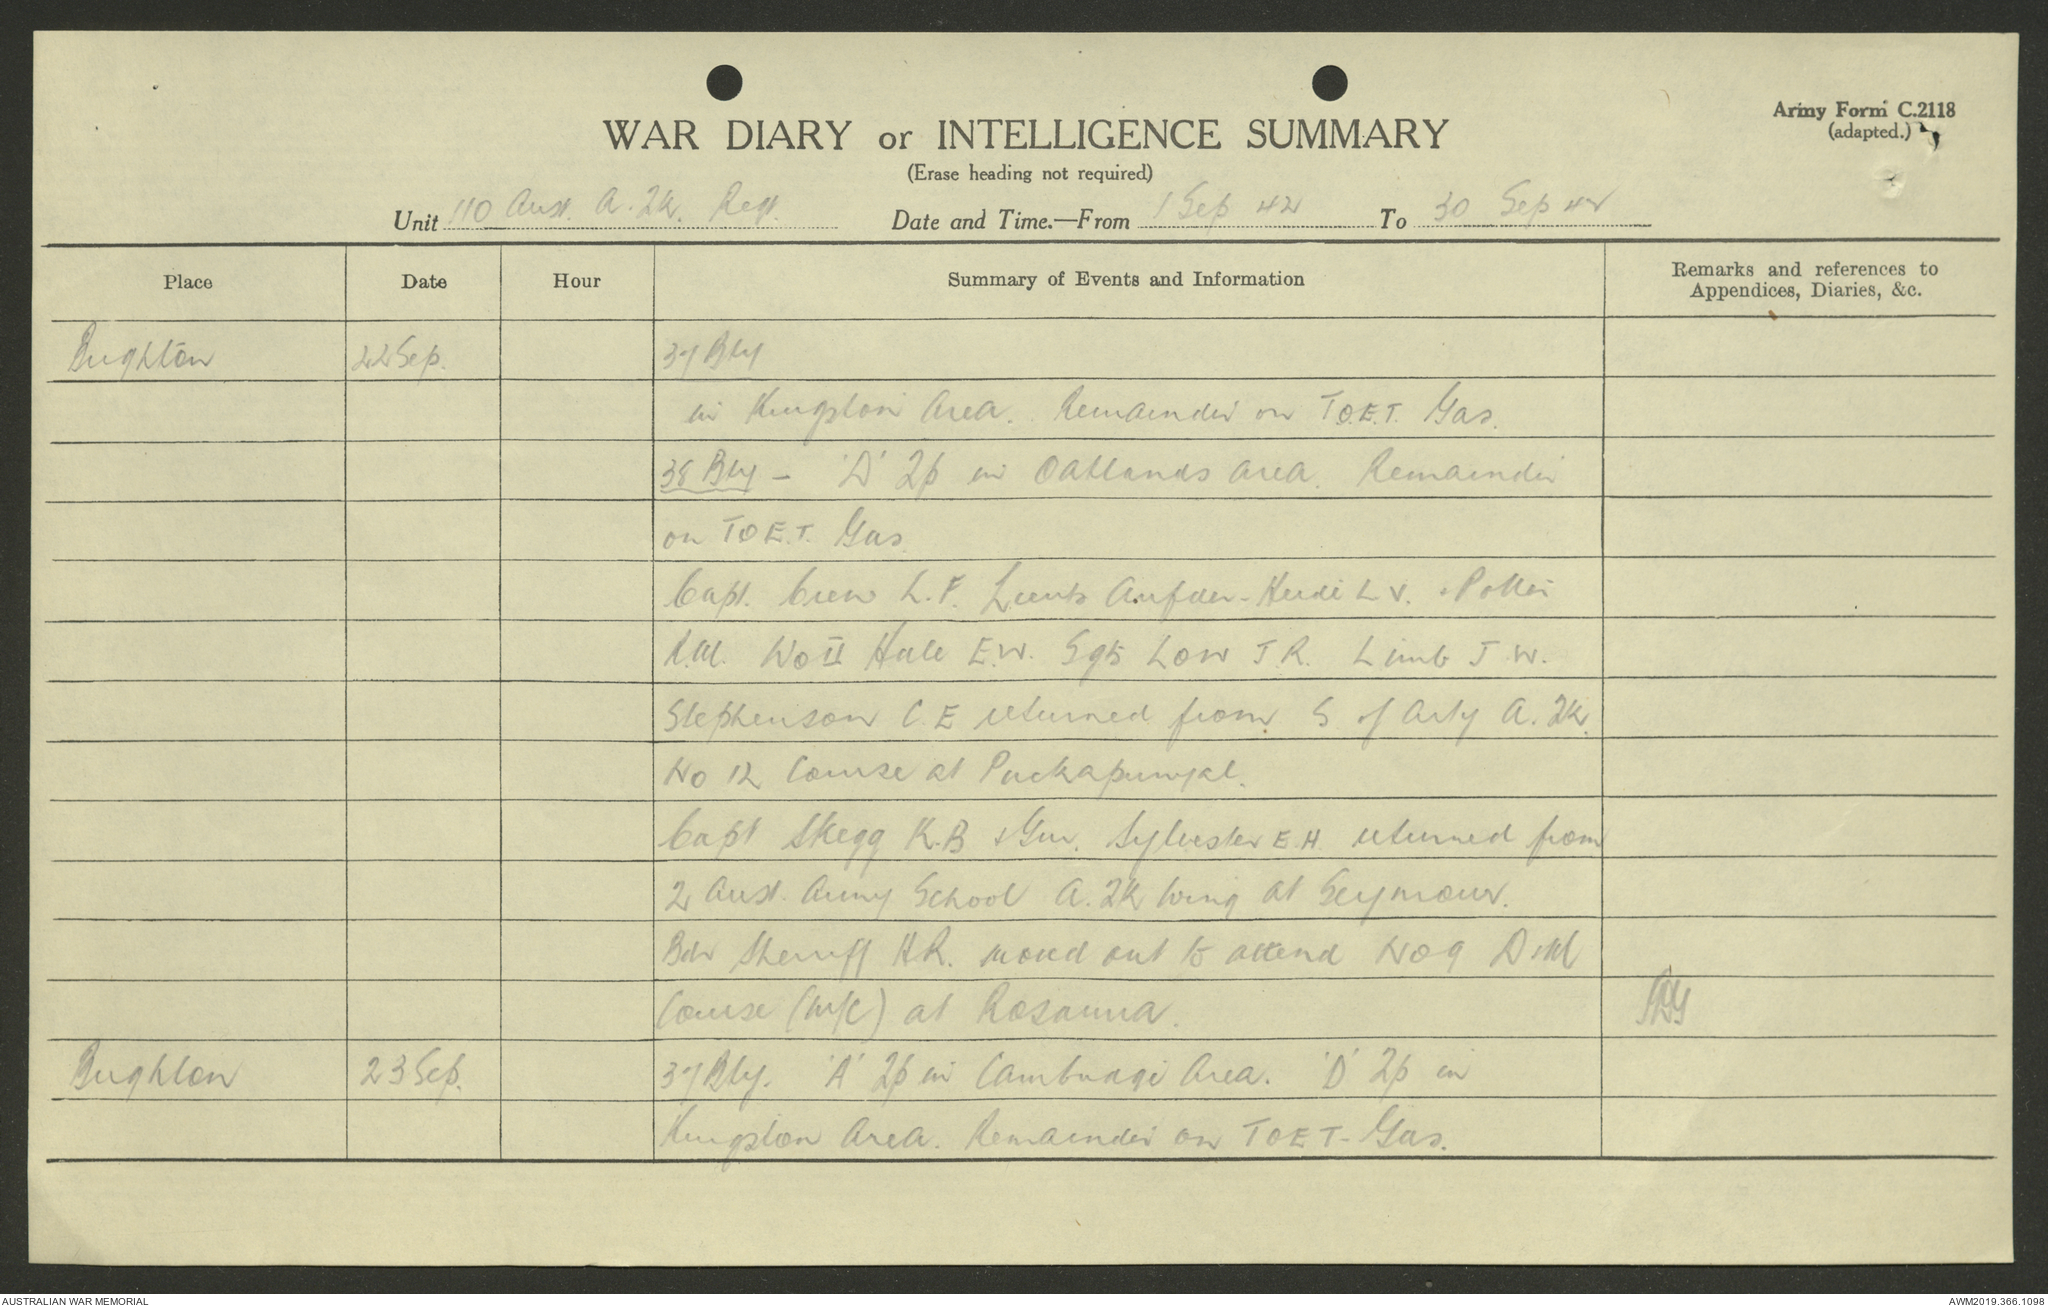 Army Form C.2118
(adapted.)
WAR DIARY or INTELLIGENCE SUMMARY
(Erase heading not required)
Unit 110 Aust. A.Tk. Regt. Date and Time.—From 1 Sep 42 To 30 Sep 42
Place Date Hour Summary of Events and Information Remarks and references to Appendices, Diaries, &c.
Brighton 22 Sep. 37 Bty
in Kingston Area. Remainder on T.O.E.T. Gas.
38 Bty - 'D' Tp in Oatlands area. Remainder
on TOE.T. Gas
Capt. Crew L.F. Lieuts Aufder-Heide L V. & Potter
R.M. WO II Hale E.W. Sgts Low J.R. Limb J.W.
Stephenson C.E returned from S of Arty A.Tk.
No 12 Course at Puckapunyal.
Capt Skegg K.B & Gnr. Sylvester E.H. returned from
2 Aust. Army School A.Tk Wing at Seymour.
Bdr Sherriff H.R. moved out to attend No 9 D&M
Course (M/C) at Rosanna.
Brighton 23 Sep. 37 Bty. 'A' Tp in Cambridge Area. 'D' Tp in
Kingston Area. Remainder on TOET- Gas.
AUSTRALIAN WAR MEMORIAL
AWM2019.366.1098